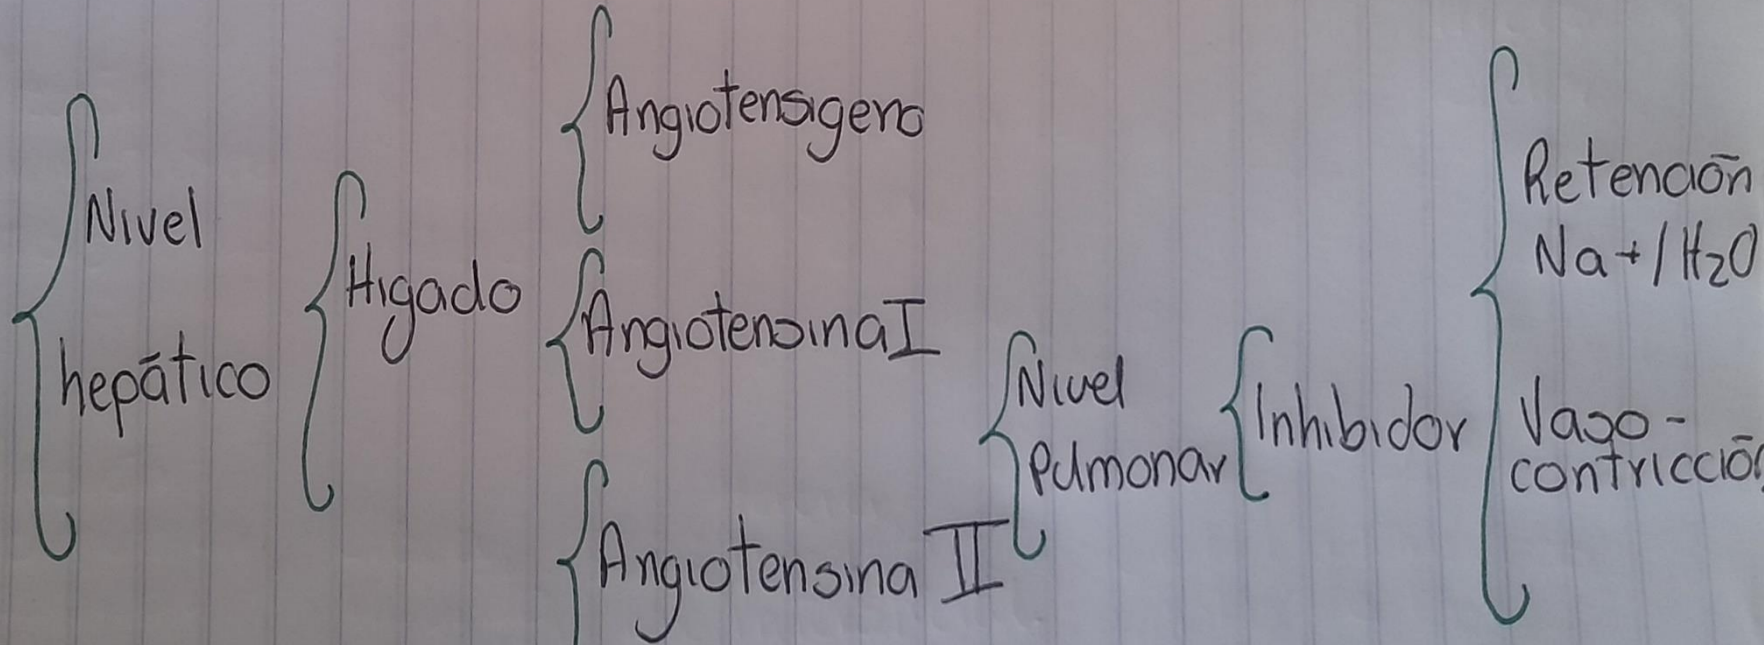 Nivel
hepático
Higado
Angiotensigeno
Angiotensina I
Angiotensina II
Nivel
Pulmonar
Inhibidor
Retención
Na+/H2O
Vaso-
contricción